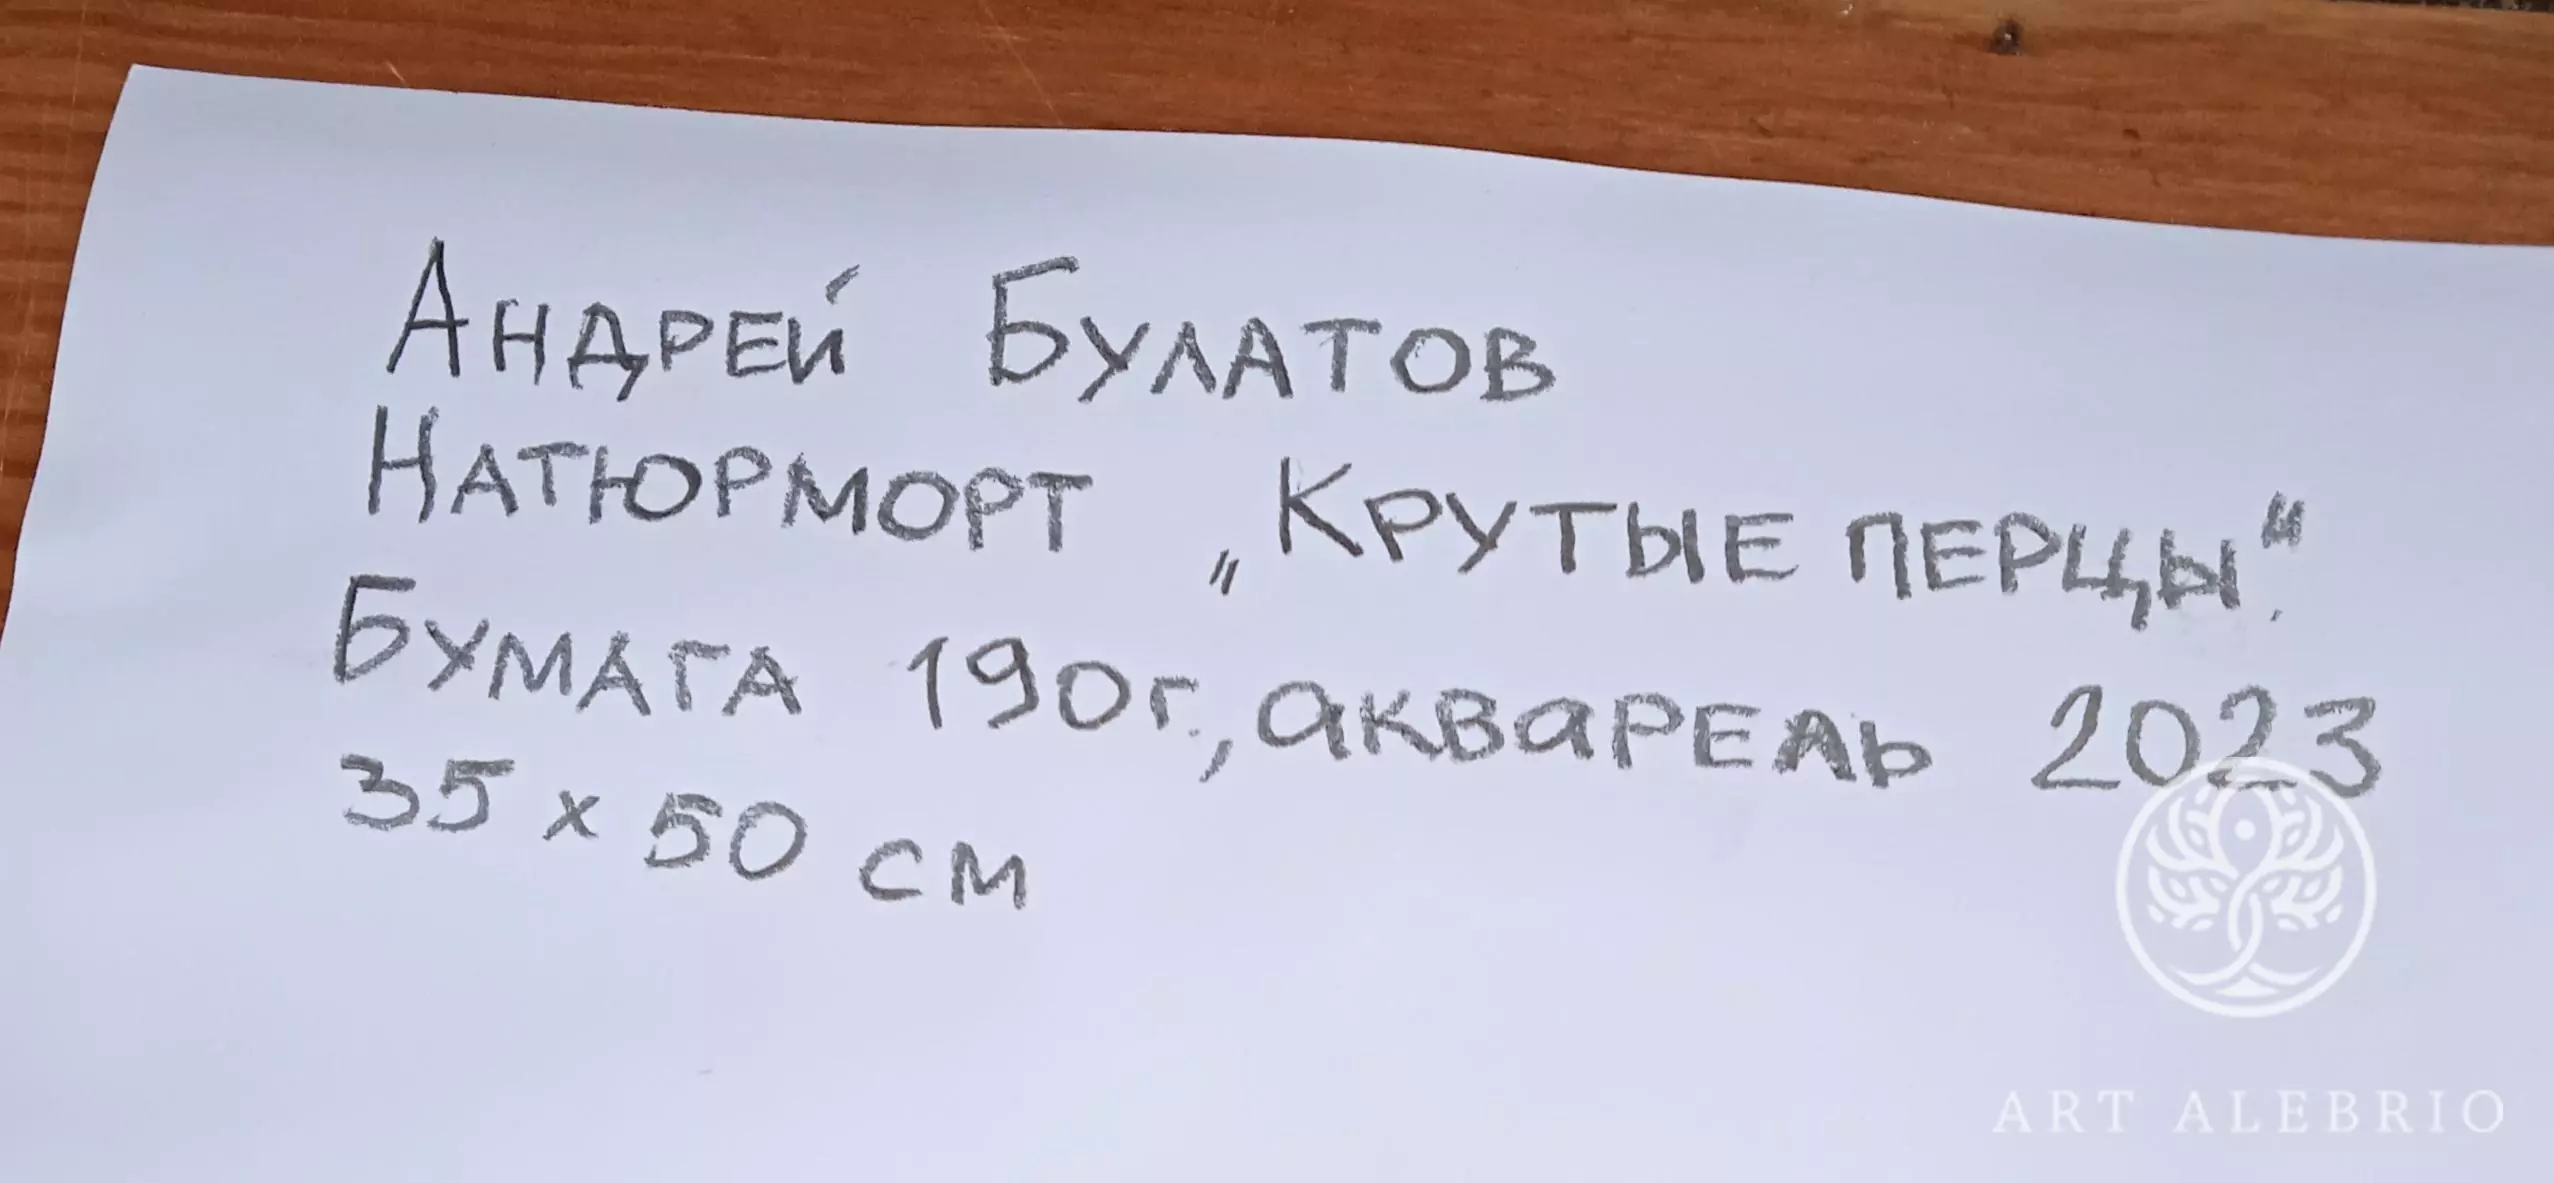 Андрей Булатов
Натюрморт „Крутые перцы“.
Бумага 190г., акварель 2023
35 x 50 см
ART ALEBRIO